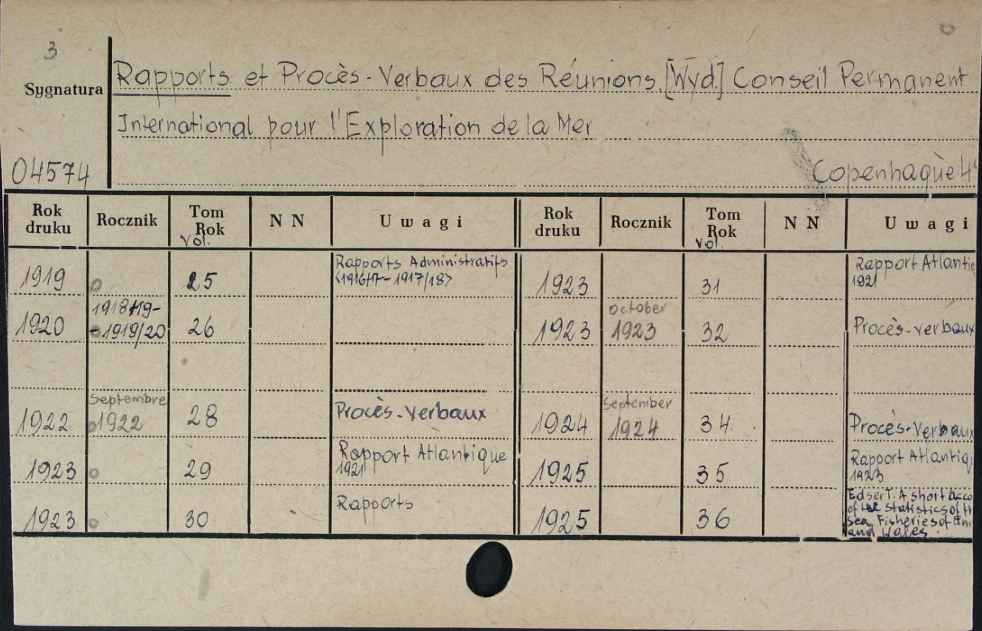 3
Sygnatura
Rapports et Procès-Verbaux des Réunions. [Wyd.] Conseil Permanent
International pour l'Exploration de la Mer
04574
Copenhague 4°
Rok druku Rocznik Tom Rok Vol. N N Uwagi
1919 25 Rapports Administratifs
<1916/17-1917/18>
1920 1918/19-
1919/20 26
1922 Septembre
1922 28 Procès-Verbaux
1923 29 Rapport Atlantique
1921
1923 30 Rapports
Rok druku Rocznik Tom Rok Vol. N N Uwagi
1923 31 Rapport Atlanti
1921
1923 October
1923 32 Procès-verbaux
1924 September
1924 34 Procès-Verbaux
1925 35 Rapport Atlantiq
1923
1925 36 Edser T. A short acco
of the Statistics of
Sea Fisheries of
and Wales.